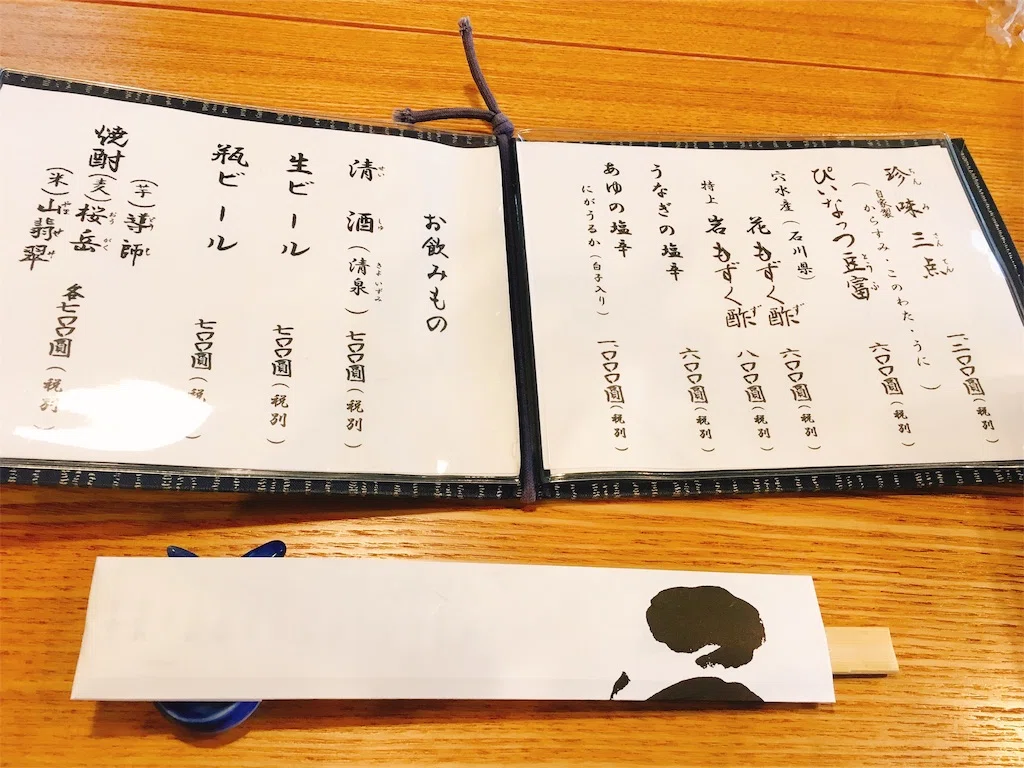 珍味三点
ちんみさんてん
自家製
(からすみ・このわた・うに)
一、二〇〇圓(税別)
ぴぃなっつ豆富
とうふ
六〇〇圓(税別)
穴水産(石川県)
花もずく酢
ず
六〇〇圓(税別)
特上 岩もずく酢
ず
八〇〇圓(税別)
うなぎの塩辛
六〇〇圓(税別)
あゆの塩辛
にがうるか(白子入り)
一、〇〇〇圓(税別)
お飲みもの
清酒(清泉)
せいしゅ きよいずみ
七〇〇圓(税別)
生ビール
七〇〇圓(税別)
瓶ビール
七〇〇圓(税
焼酎
(芋)導師
どうし
(麦)桜岳
おうがく
(米)山翡翠
各七〇〇圓(税別)